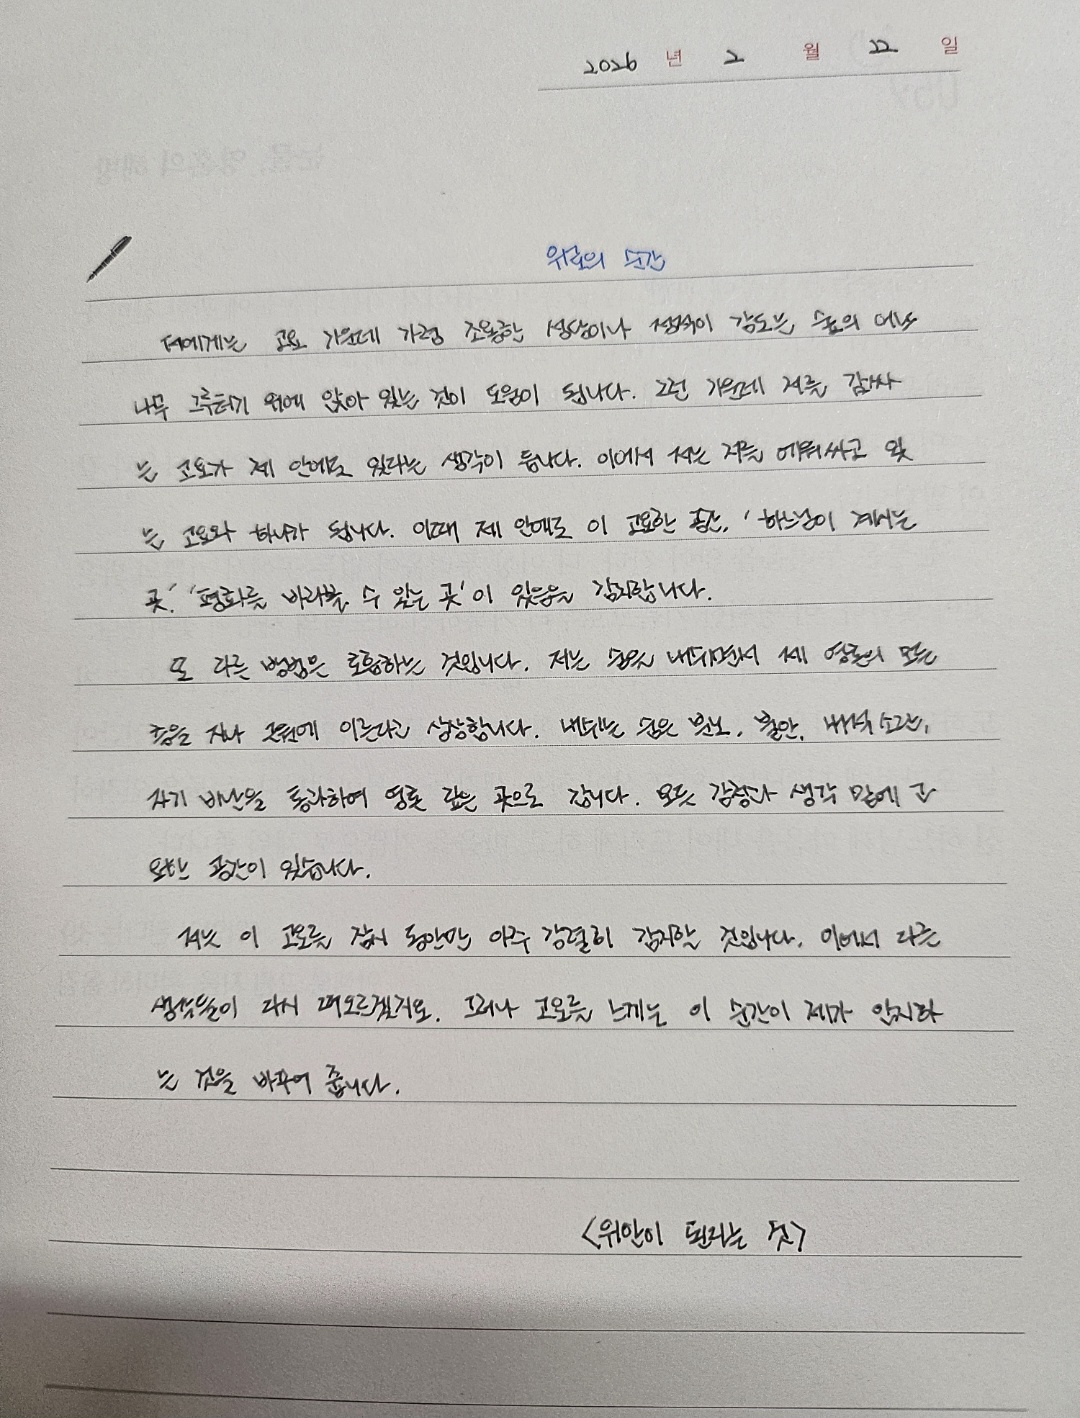 2026 년 2 월 22 일
위로의 순간
저에게는 고요 가운데 가령 조용한 성당이나 정적이 감도는 숲의 어느
나무 그루터기 위에 앉아 있는 것이 도움이 됩니다. 그런 가운데 저를 감싸
는 고요가 제 안에도 있다는 생각이 듭니다. 이에서 저는 저를 에워싸고 있
는 고요와 하나가 됩니다. 이때 제 안에도 이 고요한 공간, '하느님이 계시는
곳', '평화를 바라볼 수 있는 곳'이 있음을 감지합니다.
또 다른 방법은 호흡하는 것입니다. 저는 숨을 내쉬면서 제 영혼의 모든
층을 지나 근원에 이른다고 상상합니다. 내쉬는 숨은 분노, 불안,
자기 비난을 통과하여 영혼 깊은 곳으로 갑니다. 모든 감정과 생각 밑에 고
요한 공간이 있습니다.
저는 이 고요를 잠시 동안만 아주 강렬히 감지할 것입니다. 이에서 다른
생각들이 다시 떠오르겠지요. 그러나 고요를 느끼는 이 순간이 제가 감지하
는 것을 바꾸어 줍니다.
<위안이 된다는 것>